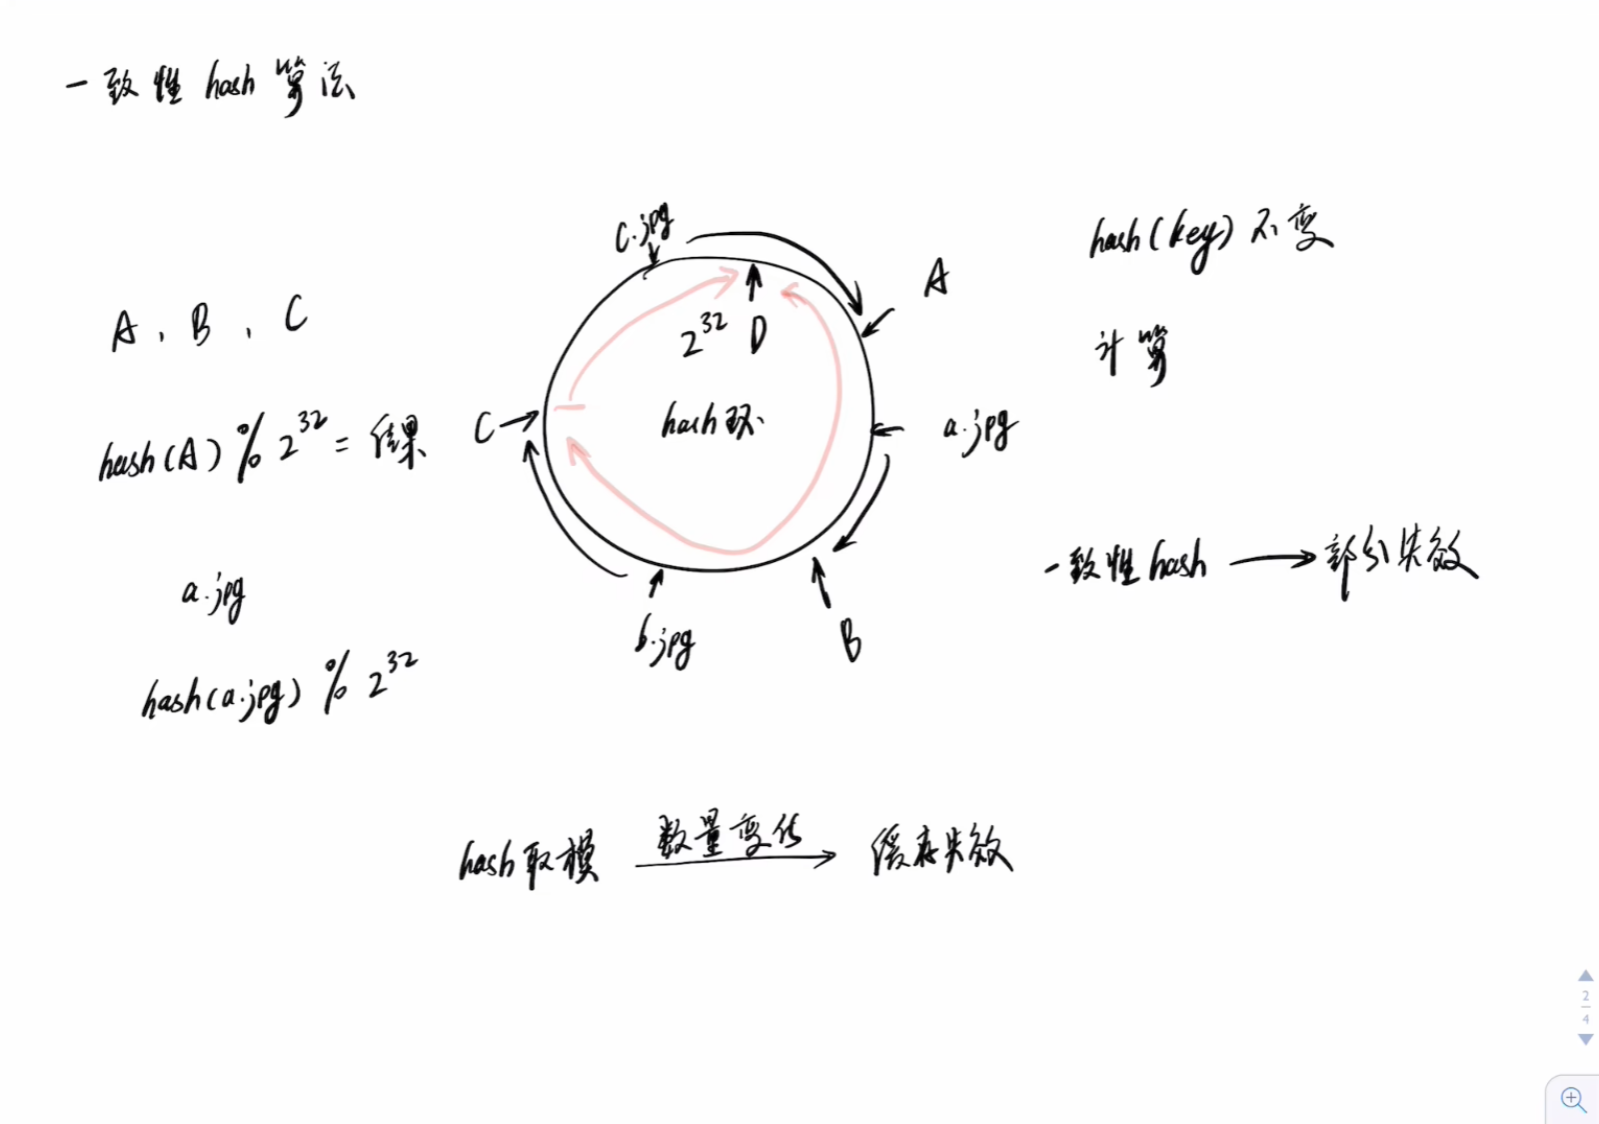 一致性hash算法
A, B, C
hash(A) % 2^32 = 结果
a.jpg
hash(a.jpg) % 2^32
c.jpg
A
2^32 D
C
hash环
a.jpg
b.jpg
B
hash(key) 不变
计算
一致性hash → 部分失效
hash取模 数量变化 → 缓存失效
2
4